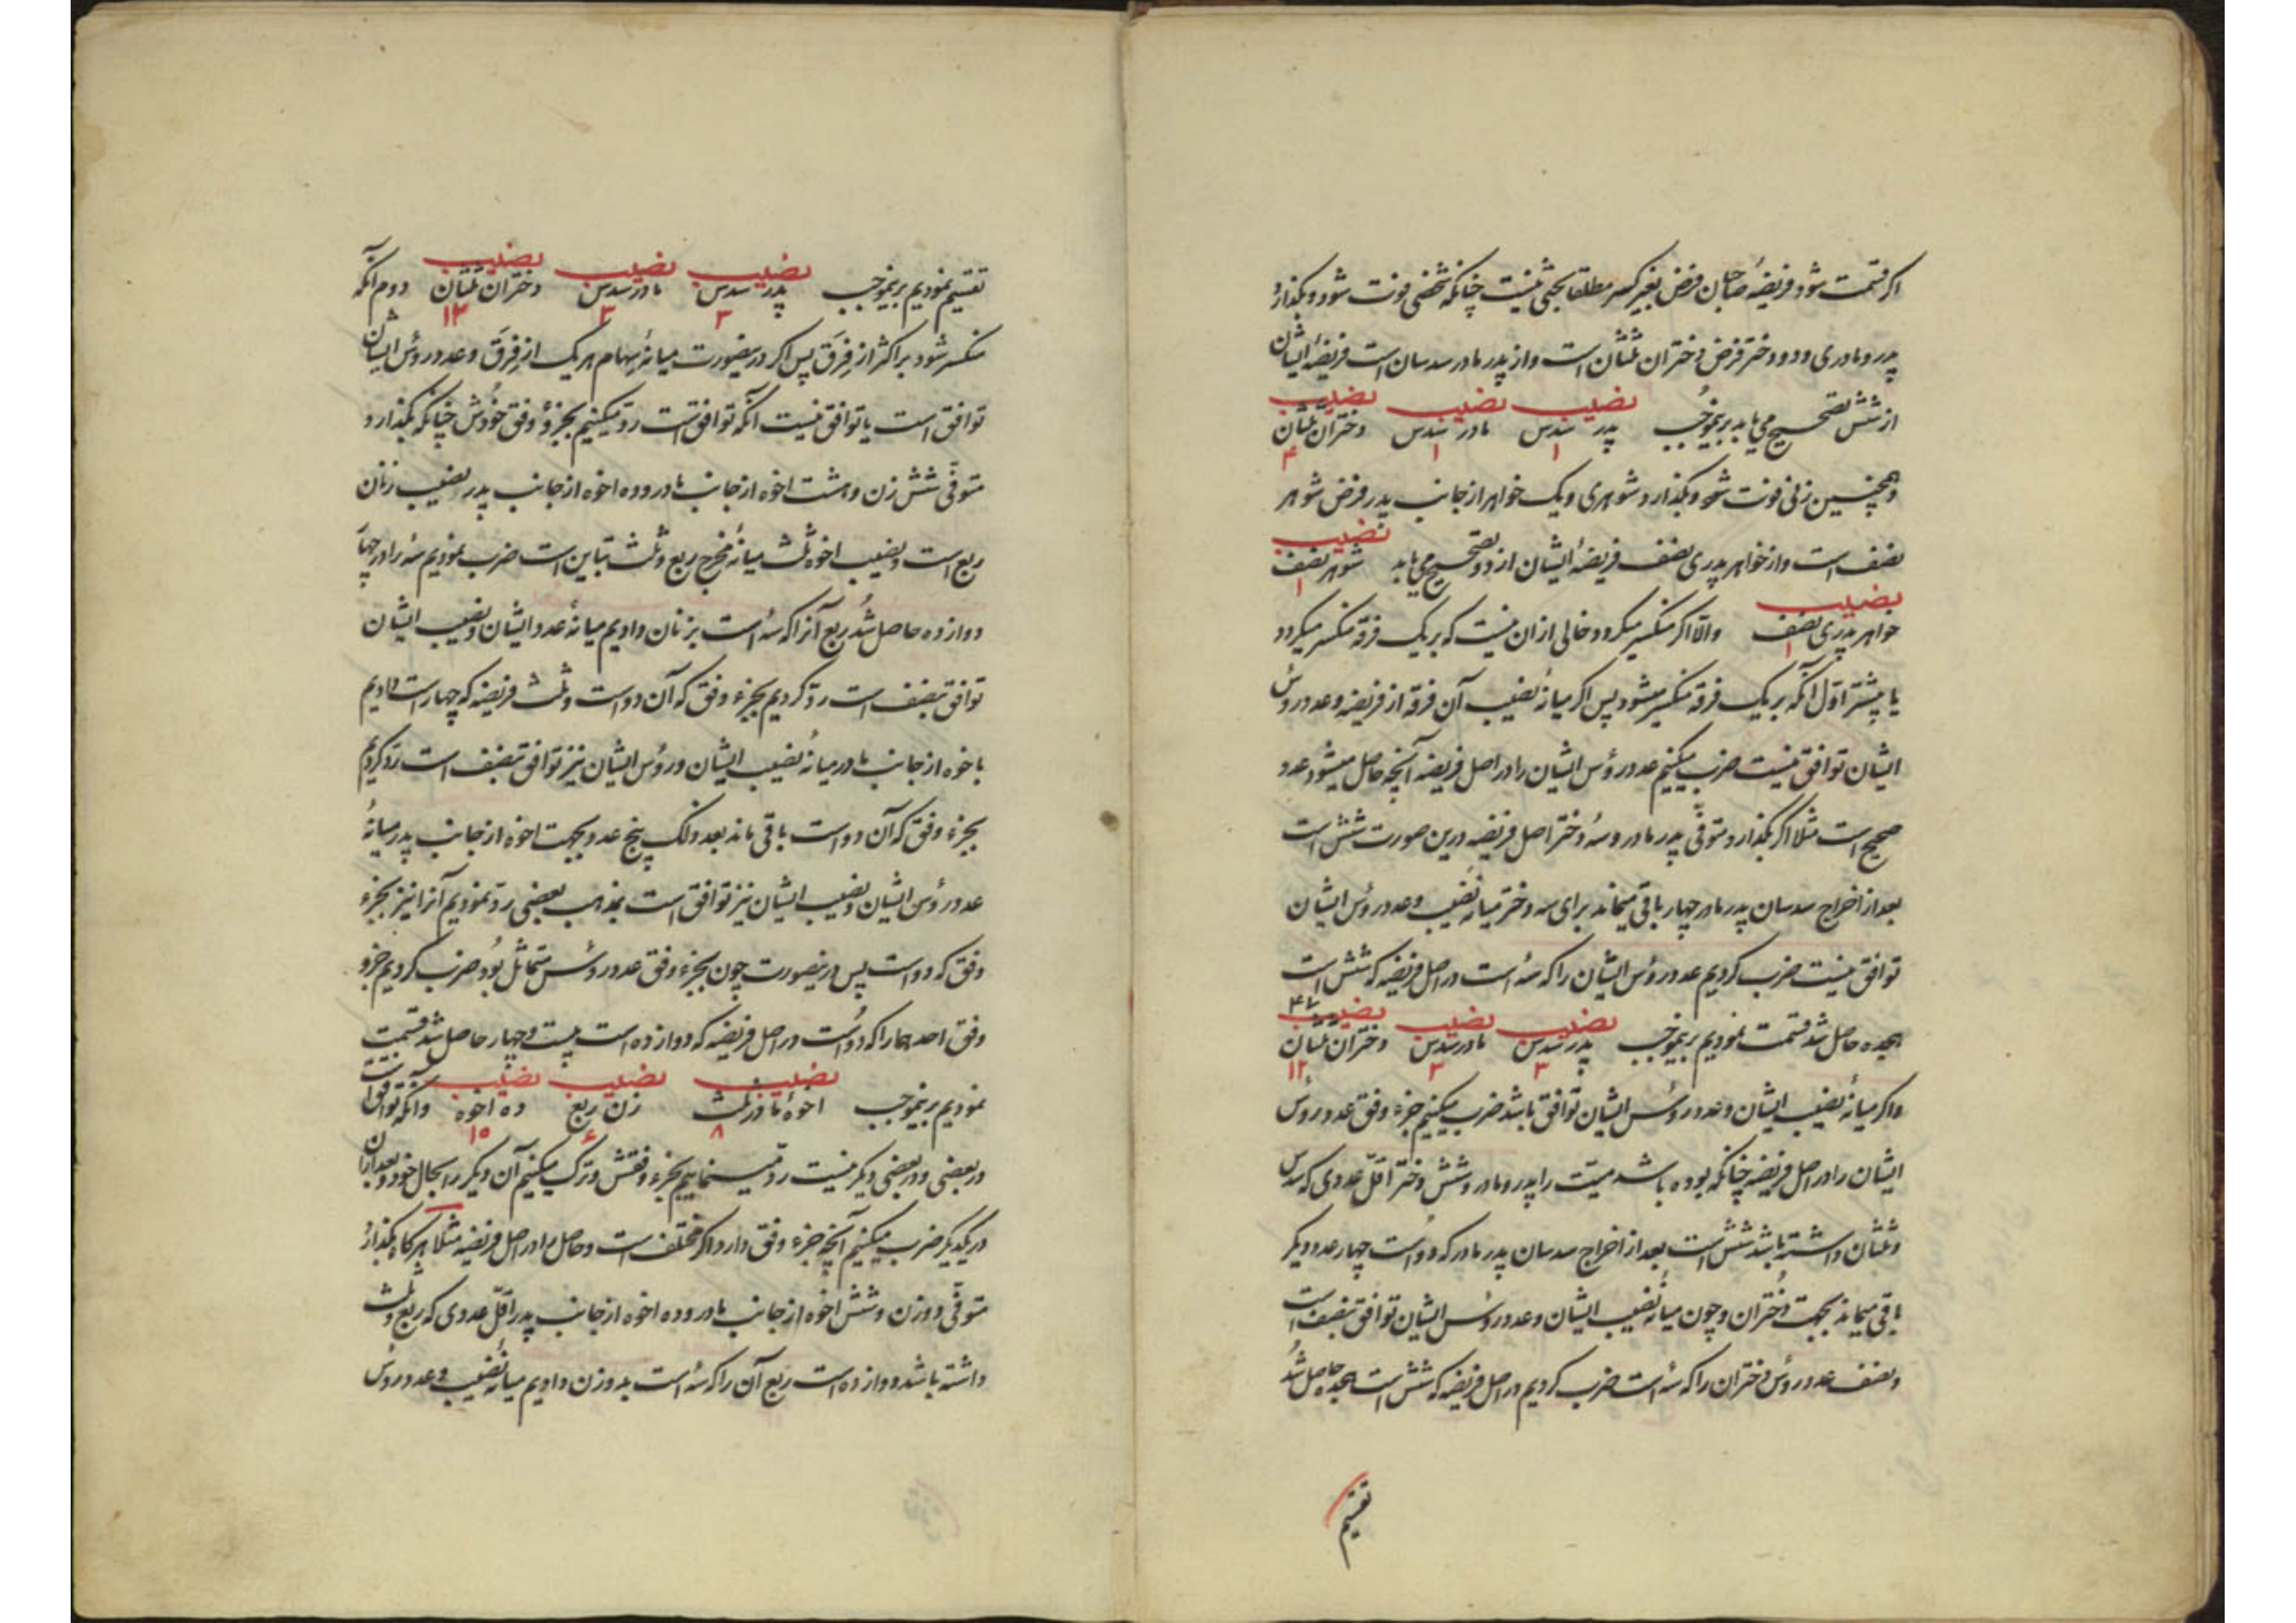 اگر قسمت شود فریضهٔ صاحبان فرض بغیر کسر مطلقا بحثی نیست چنانکه شخصی فوت شود و بگذارد
پدر و مادری و دو دختر فرض دختران ثلثان است و از پدر مادر سدسان است فریضهٔ ایشان
از شش تصحیح می یابد برینموجب نصیب پدر سدس ۱ نصیب مادر سدس ۱ نصیب دختران ثلثان ۴
و همچنین زنی فوت شود و بگذارد شوهری و یک خواهر از جانب پدر فرض شوهر
نصف است و از خواهر پدری نصف فریضهٔ ایشان از دو تصحیح می یابد نصیب شوهر نصف ۱
نصیب خواهر پدری نصف ۱ والّا اگر منکسر میگردد خالی ازان نیست که بر یک فرقه منکسر میگردد
یا بیشتر اوّل آنکه بر یک فرقه منکسر میشود پس اگر میانهٔ نصیب آن فرقه از فریضه و عدد رؤس
ایشان توافق نیست ضرب میکنیم عدد رؤس ایشان را در اصل فریضه آنچه حاصل میشود عدد
صحیح است مثلا اگر بگذارد متوفّی پدر مادر و سه دختر اصل فریضه درین صورت شش است
بعد از اخراج سدسان پدر مادر چهار باقی میماند برای سه دختر میانهٔ نصیب و عدد رؤس ایشان
توافق نیست ضرب کردیم عدد رؤس ایشان را که سه است در اصل فریضه که شش است
هجده حاصل شد قسمت نمودیم برینموجب نصیب پدر سدس ۳ نصیب مادر سدس ۳ نصیب دختران ثلثان ۱۲
و اگر میانهٔ نصیب ایشان و عدد رؤس ایشان توافق باشد ضرب میکنیم جزء وفق عدد رؤس
ایشان را در اصل فریضه چنانکه بوده باشد میّت را پدر و مادر و شش دختر اقلّ عددی که سدس
و ثلثان داشته باشد شش است بعد از اخراج سدسان پدر مادر که دو است چهار عدد دیگر
باقی میماند بجهت دختران و چون میانهٔ نصیب ایشان و عدد رؤس ایشان توافق بنصف است
و نصف عدد رؤس دختران را که سه است ضرب کردیم در اصل فریضه که شش است هجده حاصل شد
تقسیم
تقسیم نمودیم برینموجب نصیب پدر سدس ۳ نصیب مادر سدس ۳ نصیب دختران ثلثان ۱۲ دوم آنکه
منکسر شود بر اکثر از فِرَق پس اگر درینصورت میانهٔ سهام هر یک از فِرَق و عدد رؤس ایشان
توافق است یا توافق نیست آنکه توافق است ردّ میکنیم بجزء وفق خودش چنانکه بگذارد
متوفّی شش زن و هشت اخوه از جانب مادر و ده اخوه از جانب پدر نصیب زنان
ربع است و نصیب اخوه ثلث میانهٔ مخرج ربع و ثلث تباین است ضرب نمودیم سه را در چهار
دوازده حاصل شد ربع آنرا که سه است بزنان دادیم میانهٔ عدد ایشان و نصیب ایشان
توافق بنصف است ردّ کردیم بجزء وفق که آن دو است و ثلث فریضه که چهار است دادیم
باخوه از جانب مادر میانهٔ نصیب ایشان و رؤس ایشان نیز توافق بنصف است ردّ کردیم
بجزء وفق که آن دو است باقی ماند بعد ذلک پنج عدد بجهت اخوه از جانب پدر میانهٔ
عدد رؤس ایشان و نصیب ایشان نیز توافق است بمذهب بعضی ردّ نمودیم آنرا نیز بجزء
وفق که دو است پس درینصورت چون بجزء وفق عدد رؤس متماثل بود ضرب کردیم جزو
وفق احدهما را که دو است در اصل فریضه که دوازده است بیست و چهار حاصل شد قسمت
نمودیم برینموجب نصیب اخوهٔ مادر ثلث ۸ نصیب زن ربع ۶ نصیب ده اخوه ۱۰ و آنکه توافق است
در بعضی و در بعضی دیگر نیست ردّ مینماییم بجزء وفقش و ترک میکنیم آن دیگر را بحال خود و بعد ازان
در یکدیگر ضرب میکنیم آنچه جزء وفق دارد اگر مختلف است و حاصل را در اصل فریضه مثلا هرگاه بگذارد
متوفّی دو زن و شش اخوه از جانب مادر و ده اخوه از جانب پدر اقلّ عددی که ربع و ثلث
داشته باشد دوازده است ربع آن را که سه است بدو زن دادیم میانهٔ نصیب و عدد رؤس